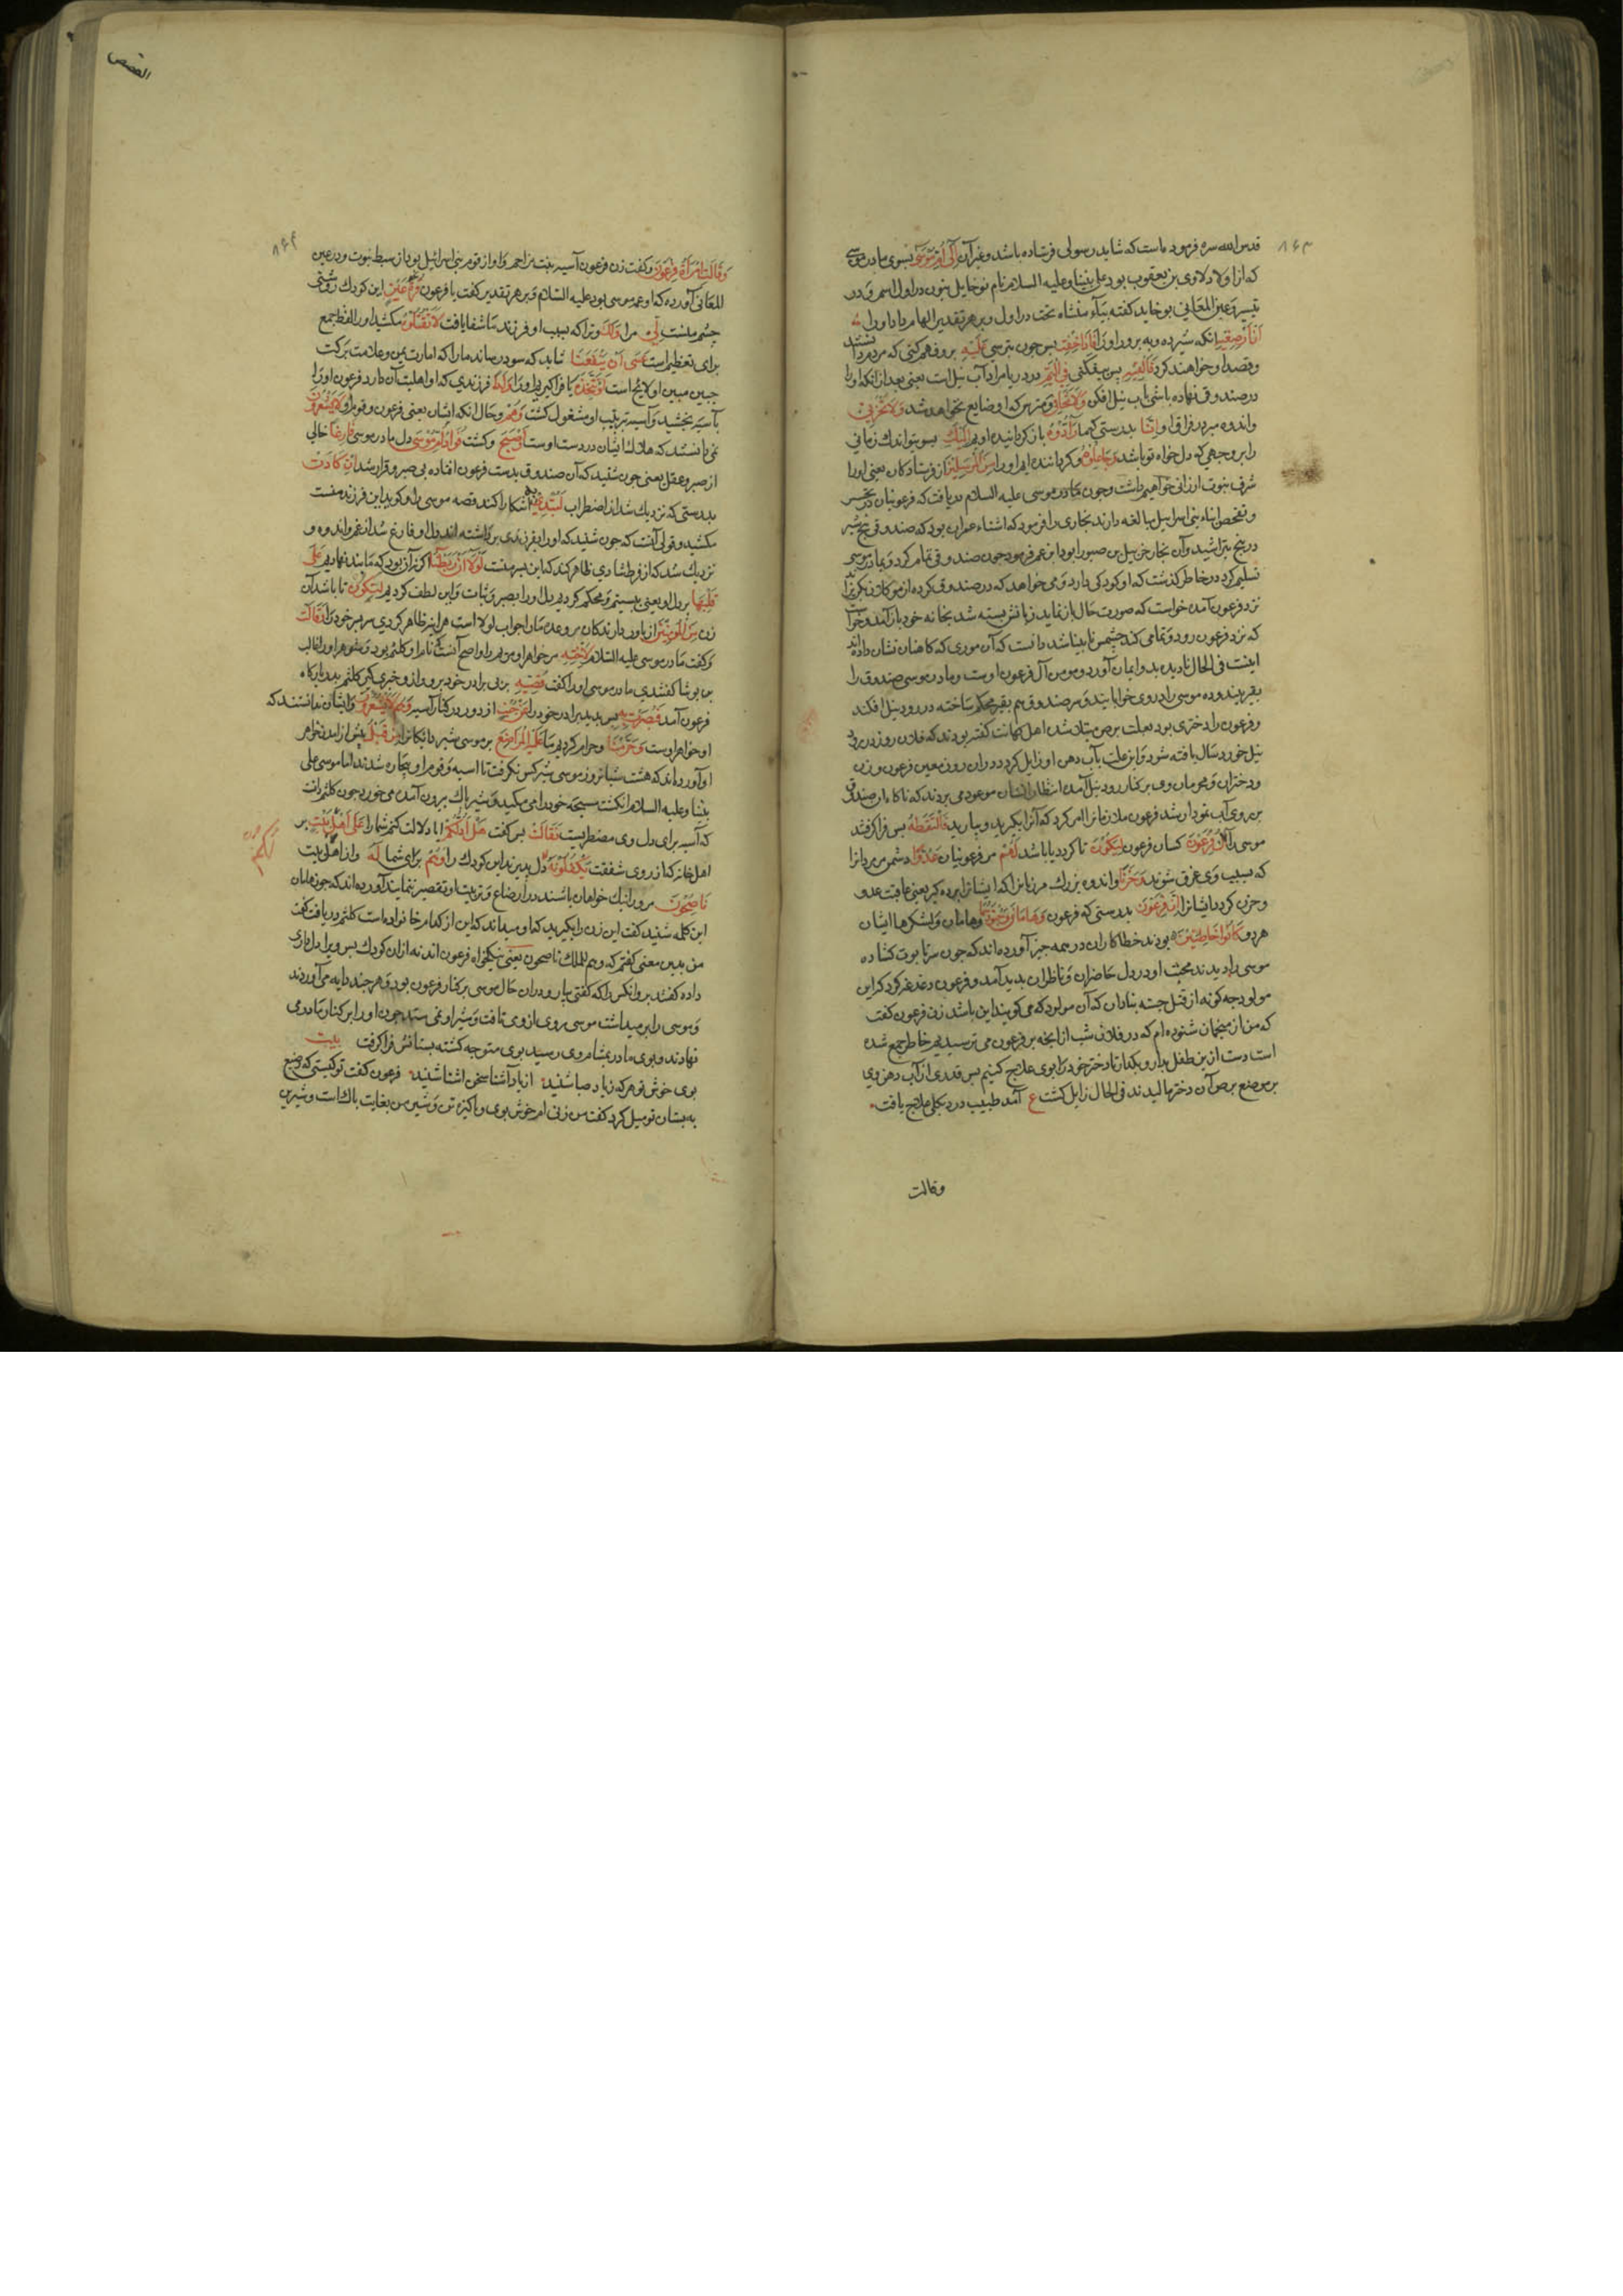 ۸۶۳
قدس الله سره فرموده است که شاید رسولی فرستاده باشد وغیر آن الی ام موسی بسوی مادر موسی
که از اولاد لاوی بن یعقوب بود علی نبینا وعلیه السلام نام نوخاید بنون در اول اسم و در
تیسیر وعین المعانی یوخاید کفته بیاء مثناه تحت در اول و بر هر تقدیر الهام داد اورا
ان ارضعیه انکه شیر ده ویه برور اورا فاذا خفت بس جون بترسی علیه برو وفهم کنی که مردم دانستند
وقصد او خواهند کرد فالقیه بس بیفکنی فی الیم در دریا مراد آب نیل است یعنی بعد از انکه اورا
در صندوق نهاده باشی بآب نیل افکن ولا تخافی ومترس که او ضایع نخواهد شد ولا تحزنی
واندوه مبر در فراق او انا بدرستی که ما رادوه باز کرداننده اویم الیک بسوی تو باندک زمانی
را بر وجهی که دل خواه تو باشد وجاعلوه وکرداننده ایم اورا من المرسلین از فرستادکان یعنی اورا
شرف نبوت ارزانی خواهیم داشت وجون مادر موسی علیه السلام دریافت که فرعونیان در تجسس
وتفحص ابناء بنی اسرائیل مبالغه دارند نجاری را فرمود که آشناء عمران بود که صندوقی پنج شبر
در پنج بتراشید وآن نجار خربیل بن صبورا بود ابن عم فرعون جون صندوق تمام کرد وبمادر موسی
تسلیم کرد در خاطر گذشت که او کودکی دارد ومی خواهد که در صندوق کرده از موکلان بگریزاند
نزد فرعون آمد خواست که صورت حال باز نماید زبانش بسته شد بخانه خود باز آمد وخواست
که نزد فرعون رود ونمامی کند چشمش نابینا شد دانست که آن مولودی که کاهنان نشان داده اند
اینست فی الحال نادیده بدو ایمان آورد ومومن آل فرعون اوست ومادر موسی صندوق را
بقیر بیندوده موسی را در وی خوابانید وسر صندوق هم بقیر محکم ساخته در رود نیل افکند
وفرعون را دختری بود بعلت برص مبتلا شده اهل کهانت کفته بودند که فلان روز در رود
نیل خورد سال یافته شود واین علت بآب دهن او زایل کردد دران روز معین فرعون وزن
ودختران ومحرمان وی بر کنار رود نیل آمده انتظار انسان موعود می بردند که ناکاه آن صندوق
بر روی آب نمودار شد فرعون ملازمانرا امر کرد که آنرا بکیرید وبیارید فالتقطه بس فرا کرفتند
موسی را آل فرعون کسان فرعون لیکون تا کردد یا باشد لهم مر فرعونیان عدوا دشمن مر مردانرا
که بسبب وی غرق شوند وحزنا واندوه بزرک مر زنانرا که ایشانرا برده کیرد یعنی عاقبت عدو
وحزن کردد ایشانرا ان فرعون بدرستی که فرعون وهامان وجنودهما وهامان ولشکرها ایشان
هردو کانوا خاطئین بودند خطاکاران در همه جیز آورده اند که جون سر تابوت کشاده
موسی را دیدند محبت او در دل حاضران وناظران بدید آمد وفرعون دغدغه کرد که این
مولود جه کونه از قتل جسته بنادان که آن مولود که می کویند این باشد زن فرعون کفت
که من از منجمان شنوده ام که در فلان شب از انجه بر فرعون می ترسیدیم خاطر جمع شده
است دست ازین طفل بدار وبکذار تا دختر خود را بوی علاج کنیم بس قدری از آب دهن وی
بر موضع برص آن دختر مالیدند فی الحال زایل کشت ع آمد طبیب درد بکلی علاج یافت
وقالت
القصص
۸۶۴
وقالت امرأة فرعون وکفت زن فرعون آسیه بنت مزاحم واو از قوم بنی اسرائیل بود از سبط نبوت ودر عین
المعانی آورده که او عمه موسی بود علیه السلام وبر هر تقدیر کفت با فرعون قرة عین این کودک روشنی
چشم منست لی مرا ولک وترا که بسبب او فرزند ما شفا یافت لا تقتلوه مکشید اورا لفظ جمع
برای تعظیم است عسی ان ینفعنا شاید که سود رساند مارا که امارت یمن وعلامت برکت
جبین مبین او لایح است او نتخذه یا فرا کیریم اورا ولدا فرزندی که او اهلیت آن دارد فرعون اورا
بآسیه بخشید وآسیه بتربیت او مشغول کشت وهم وحال انکه ایشان یعنی فرعون وقوم او لا یشعرون
نمی دانستند که هلاک ایشان در دست اوست واصبح وکشت فؤاد ام موسی دل مادر موسی فارغا خالی
از صبر وعقل یعنی جون شنید که آن صندوق بدست فرعون افتاده بی صبر وقرار شد ان کادت
بدرستی که نزدیک شد از اضطراب لتبدی به آشکارا کند قصه موسی را وکوید این فرزند منست
مکشید وقولی آنست که جون شنید که اورا بفرزندی برداشته اند دل او فارغ شد از غم واندوه و
نزدیک شد که از فرط شادی ظاهر کند که این پسر منست لولا ان ربطنا اکر نه آن بود که ما بند نهادیم علی
قلبها بر دل او یعنی ببستیم ومحکم کردیم دل اورا بصبر وثبات واین لطف کردیم لتکون تا باشد آن
زن من المؤمنین از باور دارندکان مر وعده مارا جواب لولا است هر اینه ظاهر کردی سر پسر خود را وقالت
وکفت مادر موسی علیه السلام لاخته مر خواهر او مریم را واصح آنست که نام او کلثم بود وشوهر او غالب
بن یوشا کفتندی مادر موسی اورا کفت قصیه بر پی برادر خود برو واز و خبری کیر کلثم بدر بارکاه
فرعون آمد فبصرت به بس بدید برادر خود را عن جنب از دور در کنار آسیه وهم لا یشعرون وایشان ندانستند که
او خواهر اوست وحرمنا وحرام کردیم ما علیه المراضع بر موسی شیر دایکانرا من قبل پیش از آمدن خواهر
او آورده اند که هشت شبانروز موسی شیر کس نکرفت تا آسیه وقوم او بیچاره شدند اما موسی علی
نبینا وعلیه السلام انکشت مسبحه خود را می مکید وشیر پاک بیرون آمده می خورد جون کلثم دانست
که آسیه برای دل وی مضطربست فقالت بس کفت هل ادلکم ایا دلالت کنم شمارا علی اهل بیت بر
اهل خانه که از روی شفقت یکفلونه لکم در پذیرند این کودک را وهم برای شما له واز اهل بیت
ناصحون مر ورا نیک خواهان باشند در ارضاع وتربیت او تقصیر ننمایند آورده اند که جون هامان
این کلمه شنید کفت این زن را بکیرید که او میداند که این از کدام خانواده است کلثم دریافت کفت
من بدین معنی کفتم که وهم للملک ناصحون یعنی نیکخواه فرعون اند نه ازان کودک بس ویرا دلداری
داده کفتند برو انکس را که کفتی بیار ودران حال موسی بر کنار فرعون بود وهر چند دایه می آوردند
وموسی را بر میداشت موسی روی از وی تافت وشیر او نمی ستد جون اورا بر کنار مادر می
نهادند وبوی مادر بمشام وی رسید بوی متوجه کشته پستانش فرا کرفت بیت
بوی خوش تو هر که ز باد صبا شنید از یار آشنا سخن آشنا شنید فرعون کفت تو کیستی که رضیع
به پستان تو میل کرد کفت من زنی ام خوش بوی وپاکیزه تن وشیر من بغایت پاک است وشیرین